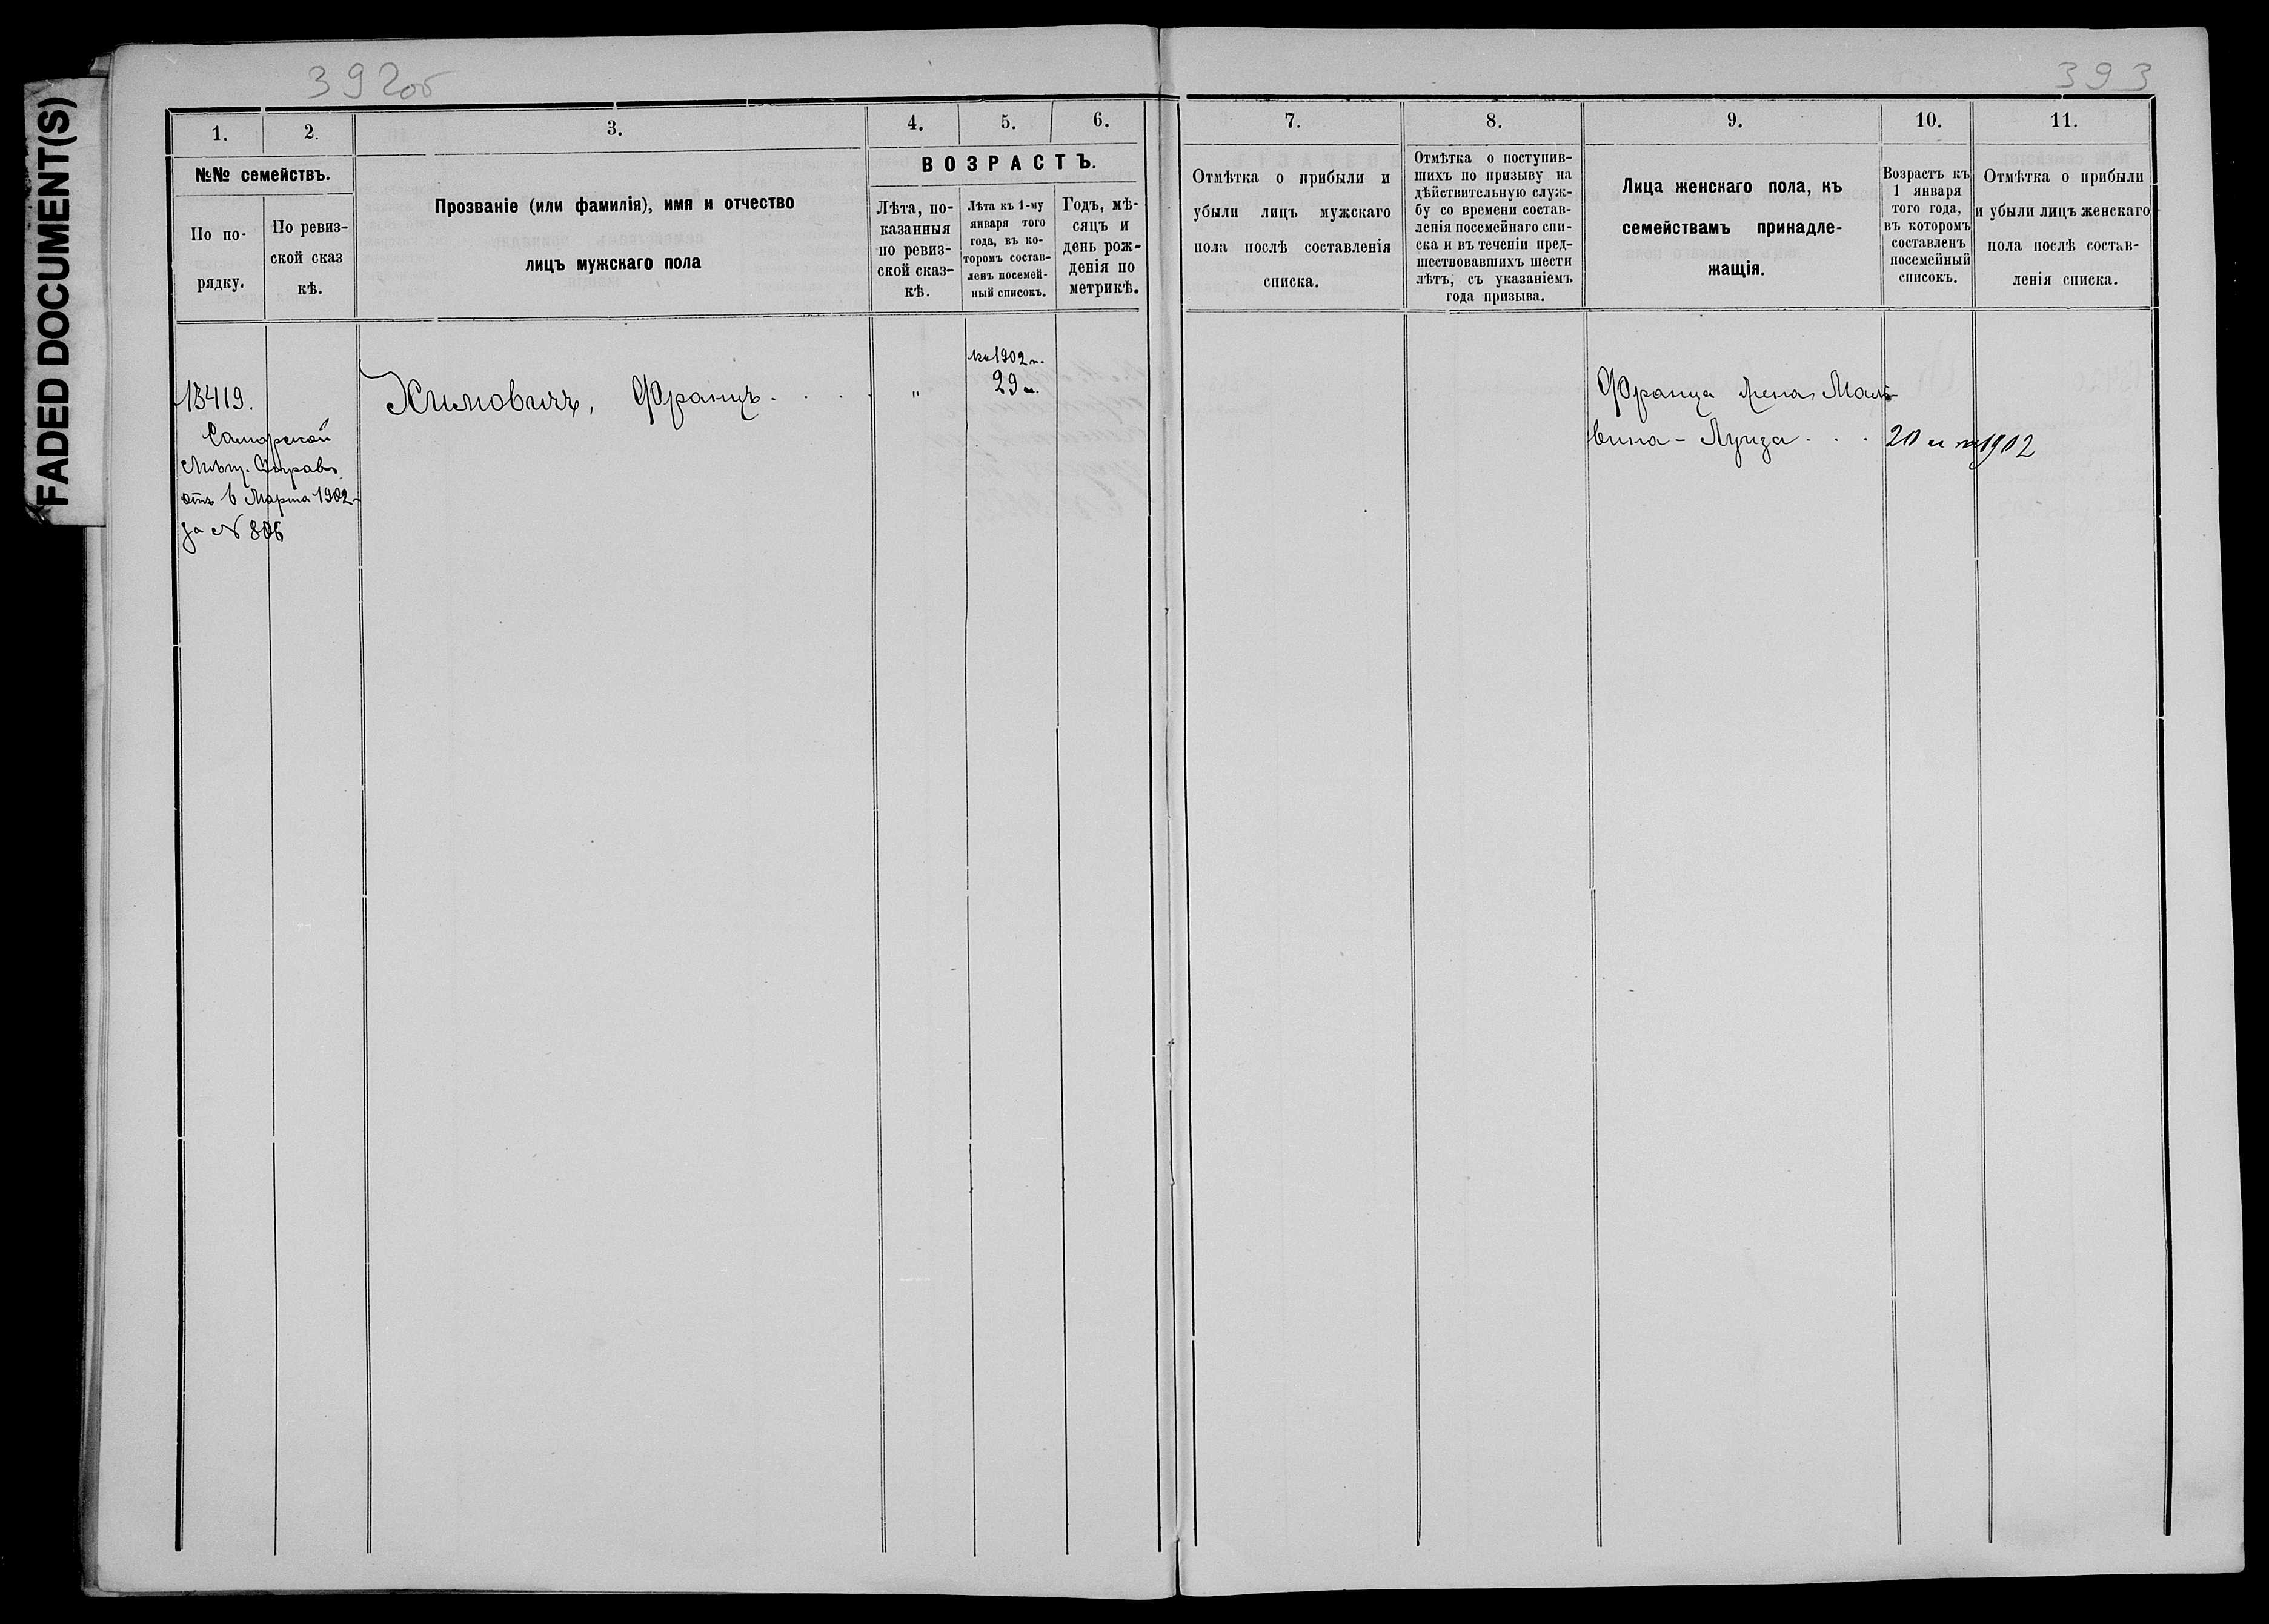 FADED DOCUMENT(S)
392об
393
1.
2.
3.
4.
5.
6.
7.
8.
9.
10.
11.
№№ семействъ.
По по-
рядку.
По ревиз-
ской сказ
кѣ.
Прозваніе (или фамилія), имя и отчество
лицъ мужскаго пола
ВОЗРАСТЪ.
Лѣта, по-
казанныя
по ревиз-
ской сказ-
кѣ.
Лѣта къ 1-му
января того
года, въ ко-
торомъ состав-
ленъ посемей-
ный списокъ.
Годъ, мѣ-
сяцъ и
день рож-
денія по
метрикѣ.
Отмѣтка о прибыли и
убыли лицъ мужскаго
пола послѣ составленія
списка.
Отмѣтка о поступив-
шихъ по призыву на
дѣйствительную служ-
бу со времени состав-
ленія посемейнаго спи-
ска и въ теченіи пред-
шествовавшихъ шести
лѣтъ, съ указаніемъ
года призыва.
Лица женскаго пола, къ
семействамъ принадле-
жащія.
Возрастъ къ
1 января
того года,
въ которомъ
составленъ
посемейный
списокъ.
Отмѣтка о прибыли
и убыли лицъ женскаго
пола послѣ состав-
ленія списка.
13419.
Самарской
Мѣщ. Управы
отъ 6 Марта 1902
за № 806
Химовичъ, Францъ . . . .
"
къ 1902 г.
29 л.
Франца жена Маль-
вина - Луиза . . . 20 л 1902